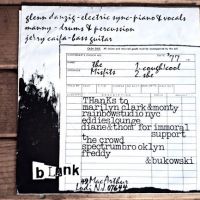 glenn danzig-electric sync-piano & vocals
manny - drums & percussion
jerry caifa-bass guitar
'77
the Misfits
1. cough/cool
2. she
THanKs to
marilyn clark & monty
rainbowstudio nyc
eddieslounge
diane&thom for immoral
support
the crowd
spectrumbrooklyn
freddy
& bukowski
blank
Lodi NJ 07644